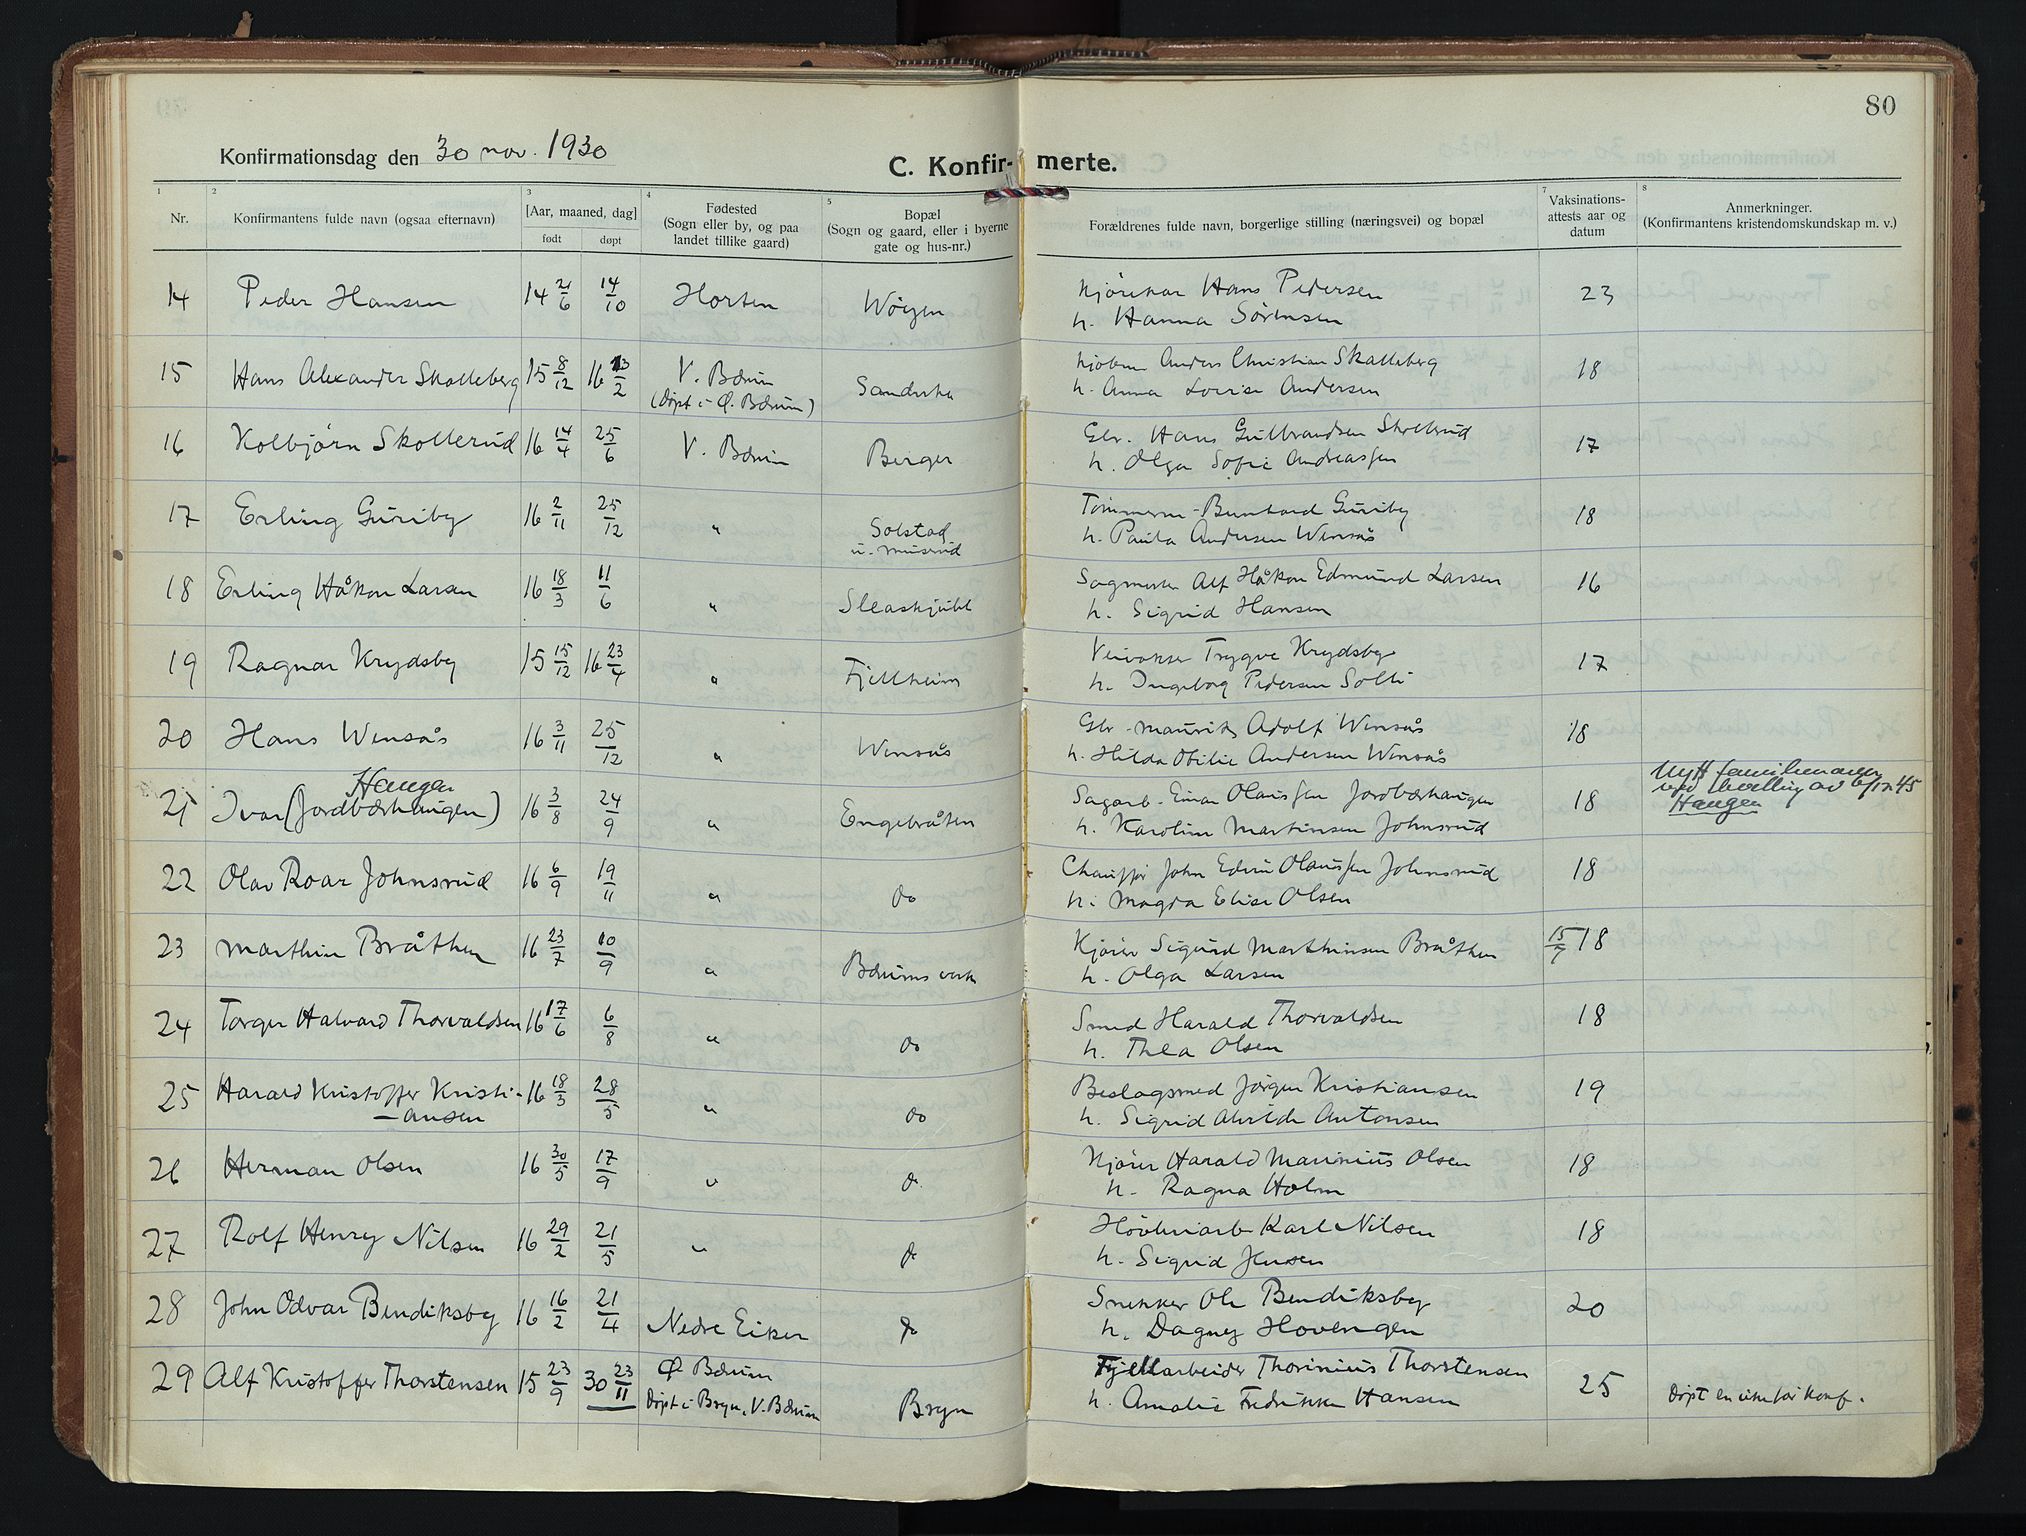 80
Konfirmationsdag den 30 nov. 1930
C. Konfirmerte.
1 2 3 4 5 7 8
Nr.
Konfirmantens fulde navn (ogsaa efternavn)
[Aar, maaned, dag]
født døpt
Fødested
(Sogn eller by, og paa
landet tillike gaard)
Bopæl
(Sogn og gaard, eller i byerne
gate og hus-nr.)
Forældrenes fulde navn, borgerlige stilling (næringsvei) og bopæl
Vaksinations-
attests aar og
datum
Anmerkninger.
(Konfirmantens kristendomskundskap m. v.)
14 Peder Hansen 14 21/6 14/10 Horten Wøyen Kjørekar Hans Pedersen 23
h. Hanna Sørensen
15 Hans Alexander Skolleberg 15 8/12 16 13/2 V. Bærum Sandvika Anders Christian Skalleberg 18
(Døpt i Ø. Bærum) h. Anna Lovise Andersen
16 Kolbjørn Skollerud 16 14/4 25/6 V. Bærum Berger Gbr. Hans Gulbrandsen Skollerud 17
h. Olga Sofie Andreassen
17 Erling Guriby 16 2/11 25/12 " Solstad Tømmerm. Bernhard Guriby 18
u. Musrud h. Paula Andersen Wensås
18 Erling Håkon Larsen 16 18/3 11/6 " Sleaskjulet Sagmester Alf Håkon Edmund Larsen 16
h. Sigrid Hansen
19 Ragnar Krydsby 15 15/12 16 23/4 " Fjellheim Veivokter Trygve Krydsby 17
h. Ingeborg Pedersen Solli
20 Hans Wensås 16 3/11 25/12 " Wensås Gbr. Maurits Adolf Wensås 18
h. Hilda Otilie Andersen Wensås
Haugen
21 Ivar (Jordbærhaugen) 16 3/8 24/9 " Engebråten Sagarb. Einar Olaussen Jordbærhaugen 18 Nytt familienavn
ved bevilling av 6/12 45
Haugen
h. Karoline Martinsen Johnsrud
22 Olav Roar Johnsrud 16 6/9 19/11 " do Chauffør John Edvin Olaussen Johnsrud 18
h. Magda Elise Olsen
23 Marthin Bråthen 16 23/7 10/9 " Bærums verk Kjører Sigurd Marthinsen Bråthen 15/7 18
h. Olga Larsen
24 Torger Halvard Thorvaldsen 16 17/6 6/8 " do Smed Harald Thorvaldsen 18
h. Thea Olsen
25 Harald Kristoffer Kristi- 16 18/3 28/5 " do Beslagsmed Jørgen Kristiansen 19
-ansen h. Sigrid Alvilde Antonsen
26 Herman Olsen 16 30/5 17/9 " do Kjører Harald Marinius Olsen 18
h. Ragna Holm
27 Rolf Henry Nilsen 16 29/2 21/5 " do Høvleriarb. Karl Nilsen 18
h. Sigrid Jensen
28 John Odvar Bendiksby 16 16/2 21/4 Nedre Eiker do Snekker Ole Bendiksby 20
h. Dagny Hovengen
29 Alf Kristoffer Thorstensen 15 23/9 30 23/11 Ø. Bærum Bryn Fjellarbeider Thorinius Thorstensen 25 Døpt en uke før konf.
Døpt i Bryn, V. Bærum h. Amalie Fredrikke Hansen